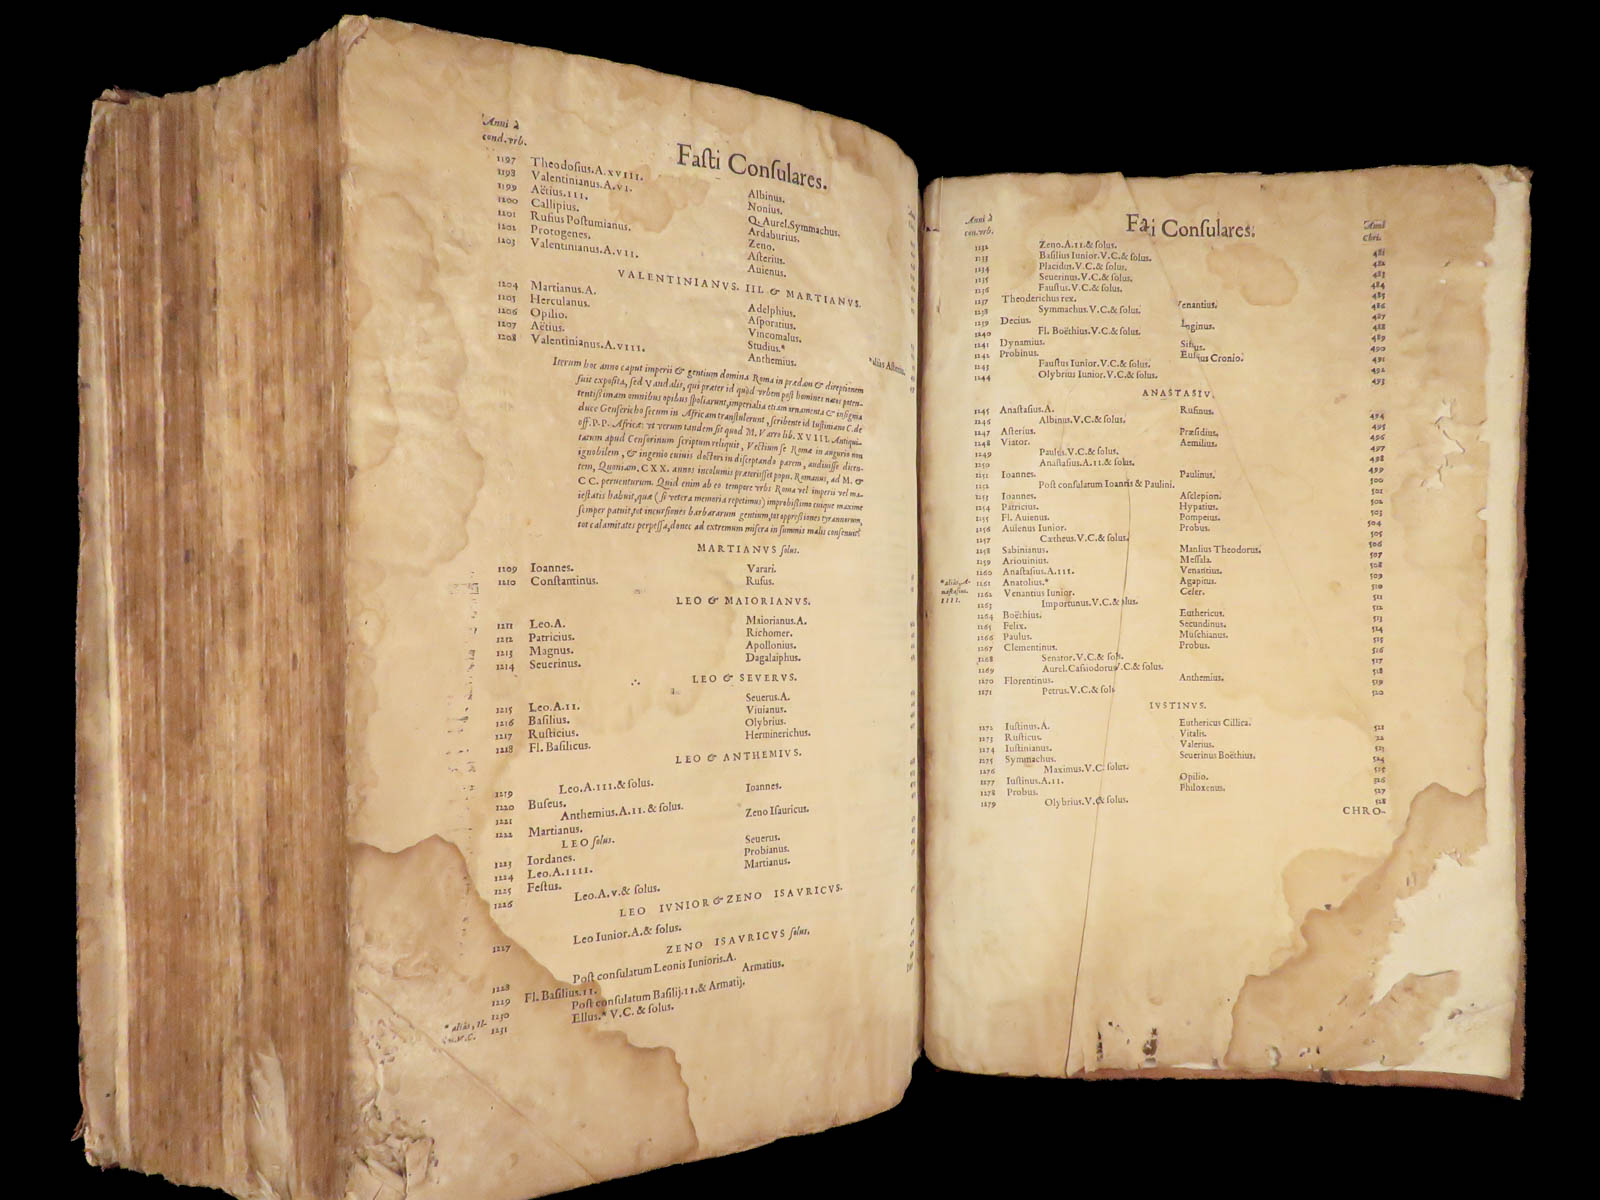 Anni à
cond.vrb.
Faſti Conſulares.
1197 Theodoſius.A.XVIII. Albinus.
1198 Valentinianus.A.VI. Nonius.
1199 Aëtius.III. Q. Aurel.Symmachus.
1200 Callipius. Ardaburius.
1201 Rufius Poſtumianus. Zeno.
1202 Protogenes. Aſterius.
1203 Valentinianus.A.VII. Auienus.
VALENTINIANVS. III. & MARTIANVS.
1204 Martianus.A. Adelphius.
1205 Herculanus. Aſporatius.
1206 Opilio. Vincomalus.
1207 Aëtius. Studius.*
1208 Valentinianus.A.VIII. Anthemius.
Iterum hoc anno caput imperii & gentium domina Roma in prædam & direptionem
fuit expoſita, ſed Vandalis, qui præter id quòd vrbem poſt homines natos poten-
tentiſſimam omnibus opibus ſpoliarunt, imperialia etiam ornamenta & inſignia
duce Genſericho ſecum in Africam tranſtulerunt, ſcribente id Iuſtiniano C. de
off. P. P. Africæ: vt verum tandem ſit quod M. Varro lib. XVIII. Antiqui-
tatum apud Cenſorinum ſcriptum reliquit, Vectium ſe Romæ in augurio non
ignobilem, & ingenio cuiuis doctori in diſceptando parem, audiuiſſe dicen-
tem, Quoniam. CXX. annos incolumis præteriiſſet popu. Romanus, ad M. &
CC. peruenturum. Quid enim ab eo tempore vrbs Roma vel imperii vel ma-
ieſtatis habuit, quæ (ſi vetera memoria repetimus) improbiſſimo cuique maxime
ſemper patuit, tot incurſiones barbararum gentium, tot oppreſſiones tyrannorum,
tot calamitates perpeſſa, donec ad extremum miſera in ſummis malis conſenuit?
MARTIANVS ſolus.
1209 Ioannes. Varari.
1210 Conſtantinus. Rufus.
LEO & MAIORIANVS.
1211 Leo.A. Maiorianus.A.
1212 Patricius. Richomer.
1213 Magnus. Apollonius.
1214 Seuerinus. Dagalaiphus.
LEO & SEVERVS.
Seuerus.A.
1215 Leo.A.II. Viuianus.
1216 Baſilius. Olybrius.
1217 Ruſticius. Herminerichus.
1218 Fl. Baſilicus.
LEO & ANTHEMIVS.
1219 Leo.A.III.& ſolus.
1220 Buſeus. Ioannes.
1221 Anthemius.A.II.& ſolus.
1222 Martianus. Zeno Iſauricus.
LEO ſolus.
1223 Iordanes. Seuerus.
1224 Leo.A.IIII. Probianus.
1225 Feſtus. Martianus.
1226 Leo.A.V.& ſolus.
LEO IVNIOR & ZENO ISAVRICVS.
1227 Leo Iunior.A.& ſolus.
ZENO ISAVRICVS ſolus.
1228 Poſt conſulatum Leonis Iunioris.A.
1229 Fl. Baſilius.II. Armatius.
1230 Poſt conſulatum Baſilij.II.& Armatij.
1231 Ellus.* V.C.& ſolus.
Anni à
con.vrb.
Fa i Conſulares.
Anni
Chri.
1232 Zeno.A.II.& ſolus. 481
1233 Baſilius Iunior.V.C.& ſolus. 482
1234 Placidus.V.C.& ſolus. 483
1235 Seuerinus.V.C.& ſolus. 484
1236 Fauſtus.V.C.& ſolus. 485
1237 Theoderichus rex. Venantius. 486
1238 Symmachus.V.C.& ſolus. 487
1239 Decius. Longinus. 488
1240 Fl. Boëthius.V.C.& ſolus. 489
1241 Dynamius. 490
1242 Probinus. Euſebius Cronio. 491
1243 Fauſtus Iunior.V.C.& ſolus. 492
1244 Olybrius Iunior.V.C.& ſolus. 493
ANASTASIV.
1245 Anaſtaſius.A. Rufinus. 494
1246 Albinus.V.C.& ſolus. 495
1247 Aſterius. Præſidius. 496
1248 Viator. Aemilius. 497
1249 Paulus.V.C.& ſolus. 498
1250 Anaſtaſius.A.II.& ſolus. 499
1251 Ioannes. Paulinus. 500
1252 Poſt conſulatum Ioannis & Paulini. 501
1253 Ioannes. Aſclepion. 502
1254 Patricius. Hypatius. 503
1255 Fl. Auienus. Pompeius. 504
1256 Auſenus Iunior. Probus. 505
1257 Cætheus.V.C.& ſolus. 506
1258 Sabinianus. Manlius Theodorus. 507
1259 Ariouinius. Meſſala. 508
1260 Anaſtaſius.A.III. Venantius. 509
1261 Anatolius.* Agapitus. 510
1262 Venantius Iunior. Celer. 511
1263 Importunus.V.C.& ſolus. 512
1264 Boëthius. Euthericus. 513
1265 Felix. Secundinus. 514
1266 Paulus. Muſchianus. 515
1267 Clementinus. Probus. 516
1268 Senator.V.C.& ſolus. 517
1269 Aurel.Caſsiodorus V.C.& ſolus. 518
1270 Florentinus. Anthemius. 519
1271 Petrus.V.C.& ſolus 520
IVSTINVS.
1272 Iuſtinus.A. Euthericus Cillica. 521
1273 Ruſticus. Vitalis. 22
1274 Iuſtinianus. Valerius. 523
1275 Symmachus. Seuerinus Boëthius. 524
1276 Maximus.V.C. ſolus. 525
1277 Iuſtinus.A.II. Opilio. 526
1278 Probus. Philoxenus. 527
1279 Olybrius.V.C.& ſolus. 528
CHRO-